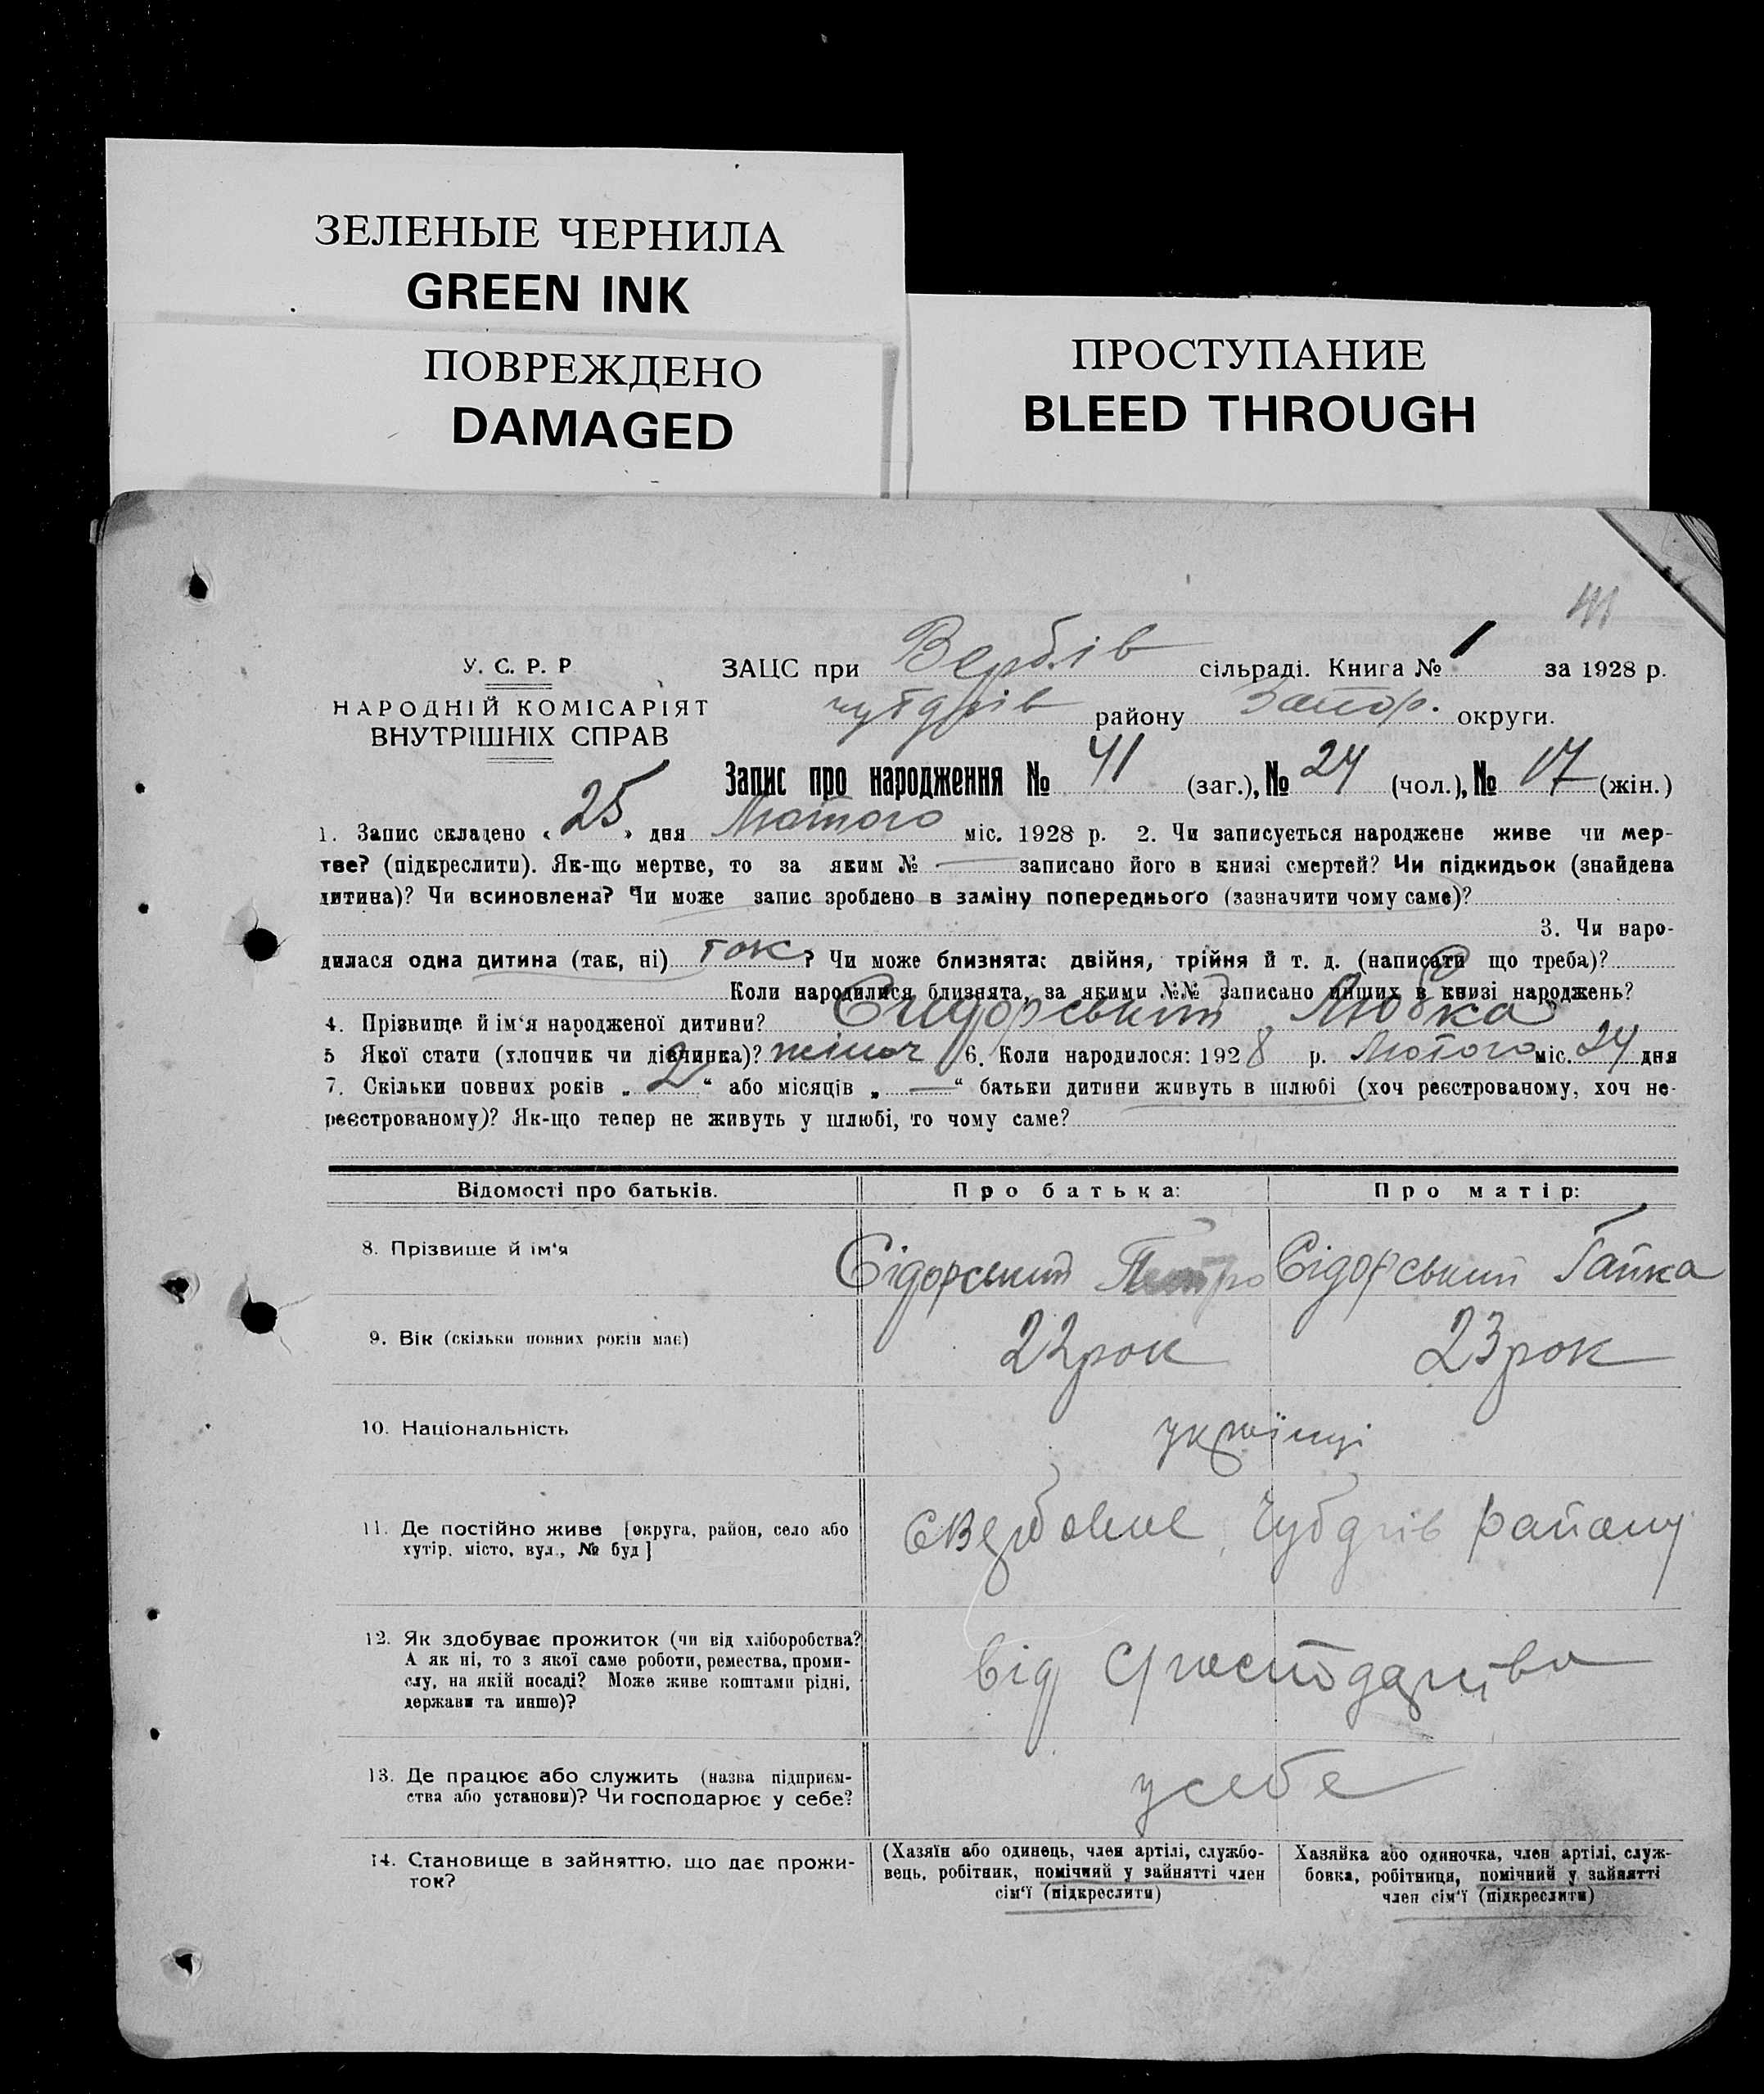 ЗЕЛЕНЫЕ ЧЕРНИЛА
GREEN INK
ПОВРЕЖДЕНО
DAMAGED
ПРОСТУПАНИЕ
BLEED THROUGH
41
У. С. Р. Р.
НАРОДНІЙ КОМІСАРІЯТ
ВНУТРІШНІХ СПРАВ
ЗАЦС при Вербів сільраді. Книга № 1 за 1928 р.
району Запор. округи.
Запис про народження № 41 (заг.), № 24 (чол.), № 17 (жін.)
1. Запис складено « 25 » дня Лютого міс. 1928 р. 2. Чи записується народжене живе чи мер-
тве? (підкреслити). Як-що мертве, то за яким № — записано його в книзі смертей? Чи підкидьок (знайдена
дитина)? Чи всиновлена? Чи може запис зроблено в заміну попереднього (зазначити чому саме)?
3. Чи наро-
дилася одна дитина (так, ні) так? Чи може близнята: двійня, трійня й т. д. (написати що треба)?
Коли народилися близнята, за якими №№ записано инших в книзі народжень?
4. Прізвище й ім'я народженої дитини? Сидорський Любка
5 Якої стати (хлопчик чи дівчинка)? жіноч 6. Коли народилося: 1928 р. Лютого міс. 24 дня
7. Скільки повних років „ 2 “ або місяців „ — “ батьки дитини живуть в шлюбі (хоч реєстрованому, хоч не-
реєстрованому)? Як-що тепер не живуть у шлюбі, то чому саме?
Відомості про батьків. Про батька: Про матір:
8. Прізвище й ім'я Сідорський Петро Сідорський Гапка
9. Вік (скільки повних років має) 22 рок 23 рок
10. Національність українці
11. Де постійно живе [округа, район, село або
хутір, місто, вул., № буд] с Вербове Чубарів району
12. Як здобуває прожиток (чи від хліборобства?
А як ні, то з якої саме роботи, ремества, проми-
слу, на якій посаді? Може живе коштами рідні,
держави та инше)? від
13. Де працює або служить (назва підприєм-
ства або установи)? Чи господарює у себе? у себе
14. Становище в зайняттю, що дає прожи-
ток?
(Хазяїн або одинець, член артілі, службо-
вець, робітник, помічний у зайнятті член
сім'ї (підкреслити)
Хазяйка або одиночка, член артілі, служ-
бовка, робітниця, помічний у зайнятті
член сім'ї (підкреслити)